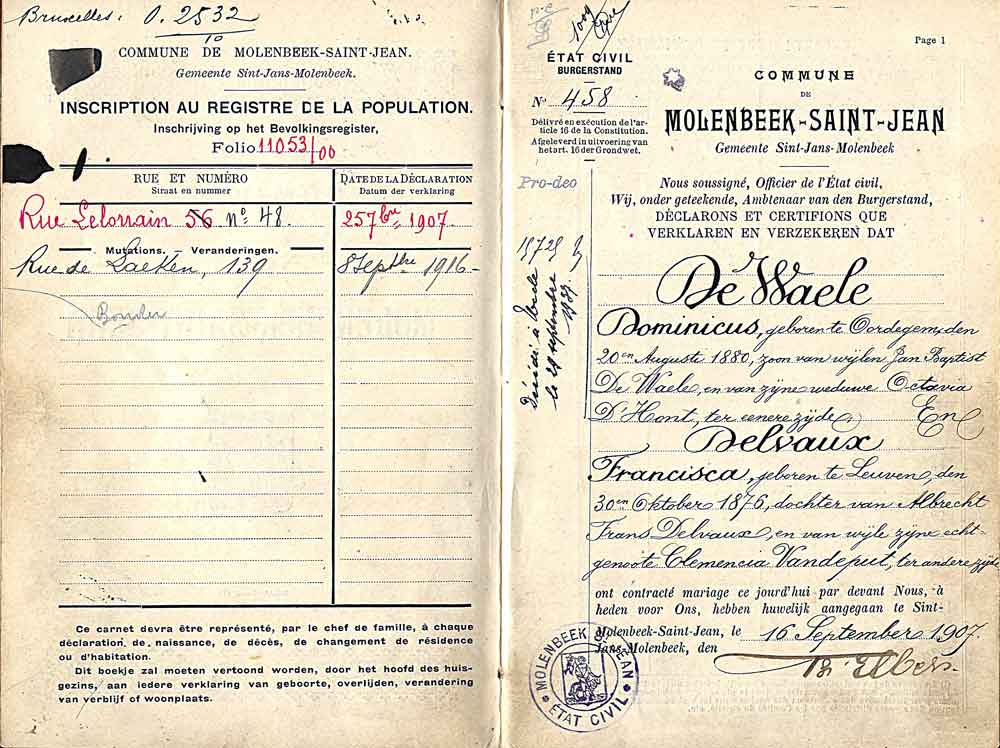 Bruxelles: O. 2532
10
COMMUNE DE MOLENBEEK-SAINT-JEAN.
Gemeente Sint-Jans-Molenbeek.
INSCRIPTION AU REGISTRE DE LA POPULATION.
Inschrijving op het Bevolkingsregister,
Folio 11053/00
RUE ET NUMÉRO
Straat en nummer
DATE DE LA DÉCLARATION
Datum der verklaring
Rue Lelorrain 56 Nº 48.
25 7bre 1907.
Mutations. — Veranderingen.
Rue de Laeken, 139
8 Septbre 1916 -
Ce carnet devra être représenté, par le chef de famille, à chaque
déclaration de naissance, de décès, de changement de résidence
ou d'habitation.
Dit boekje zal moeten vertoond worden, door het hoofd des huis-
gezins, aan iedere verklaring van geboorte, overlijden, verandering
van verblijf of woonplaats.
Page 1
ÉTAT CIVIL
BURGERSTAND
Nº 458
Délivré en exécution de l'ar-
ticle 16 de la Constitution.
Afgeleverd in uitvoering van
het art. 16 der Grondwet.
Pro-deo
Décédé à Uccle
le 29 septembre
COMMUNE
DE
MOLENBEEK-SAINT-JEAN
Gemeente Sint-Jans-Molenbeek
Nous soussigné, Officier de l'État civil,
Wij, onder geteekende, Ambtenaar van den Burgerstand,
DÉCLARONS ET CERTIFIONS QUE
VERKLAREN EN VERZEKEREN DAT
De Waele
Dominicus, geboren te Oordegem, den
20en Augusti 1880, zoon van wijlen Jan Baptist
De Waele, en van zijne weduwe Octavia
D'Hont, ter eenere zijde, En
Delvaux
Francisca, geboren te Leuven, den
30en Oktober 1876, dochter van Albrecht
Frans Delvaux, en van wijle zijne echt-
genoote Clemencia Vandeput, ter andere zijde
ont contracté mariage ce jourd'hui par devant Nous, à
heden voor Ons, hebben huwelijk aangegaan te Sint-
Molenbeek-Saint-Jean, le
Jans-Molenbeek, den
16 September 1907.
MOLENBEEK St JEAN
ÉTAT CIVIL